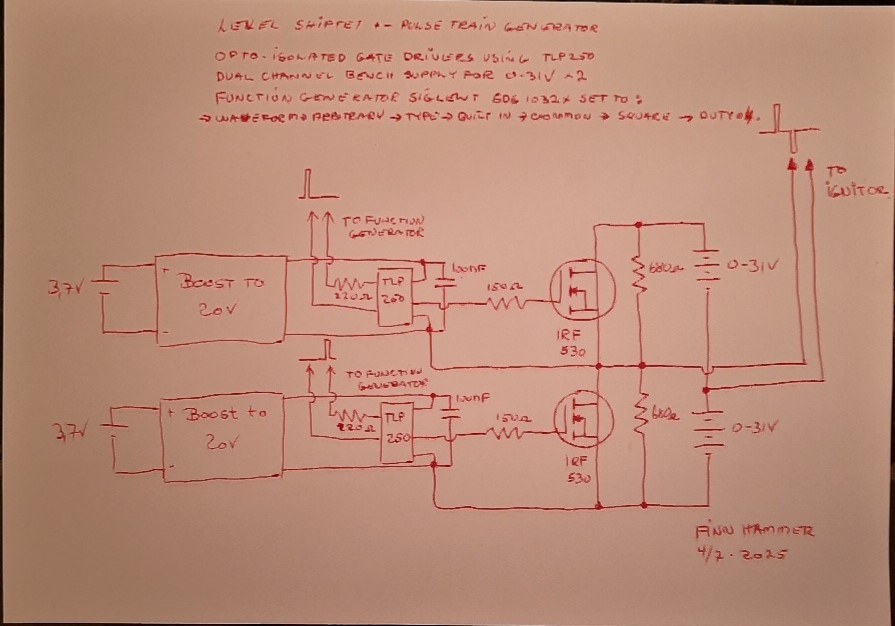 LEVEL SHIFTET +- PULSE TRAIN GENERATOR
OPTO-ISOLATED GATE DRIVERS USING TLP250
DUAL CHANNEL BENCH SUPPLY FOR 0-31V x2
FUNCTION GENERATOR SIGLENT SDG 1032X SET TO:
→ WAVEFORM → ARBITRARY → TYPE → BUILT IN → COMMON → SQUARE → DUTY
TO
IGNITOR
TO FUNCTION
GENERATOR
3,7V
+
BOOST TO
20V
-
220Ω
TLP
250
100nF
150Ω
IRF
530
680Ω
0-31V
TO FUNCTION
GENERATOR
3,7V
+ BOOST TO
20V
-
220Ω
TLP
250
100nF
150Ω
IRF
530
680Ω
0-31V
FINN HAMMER
4/7-2025